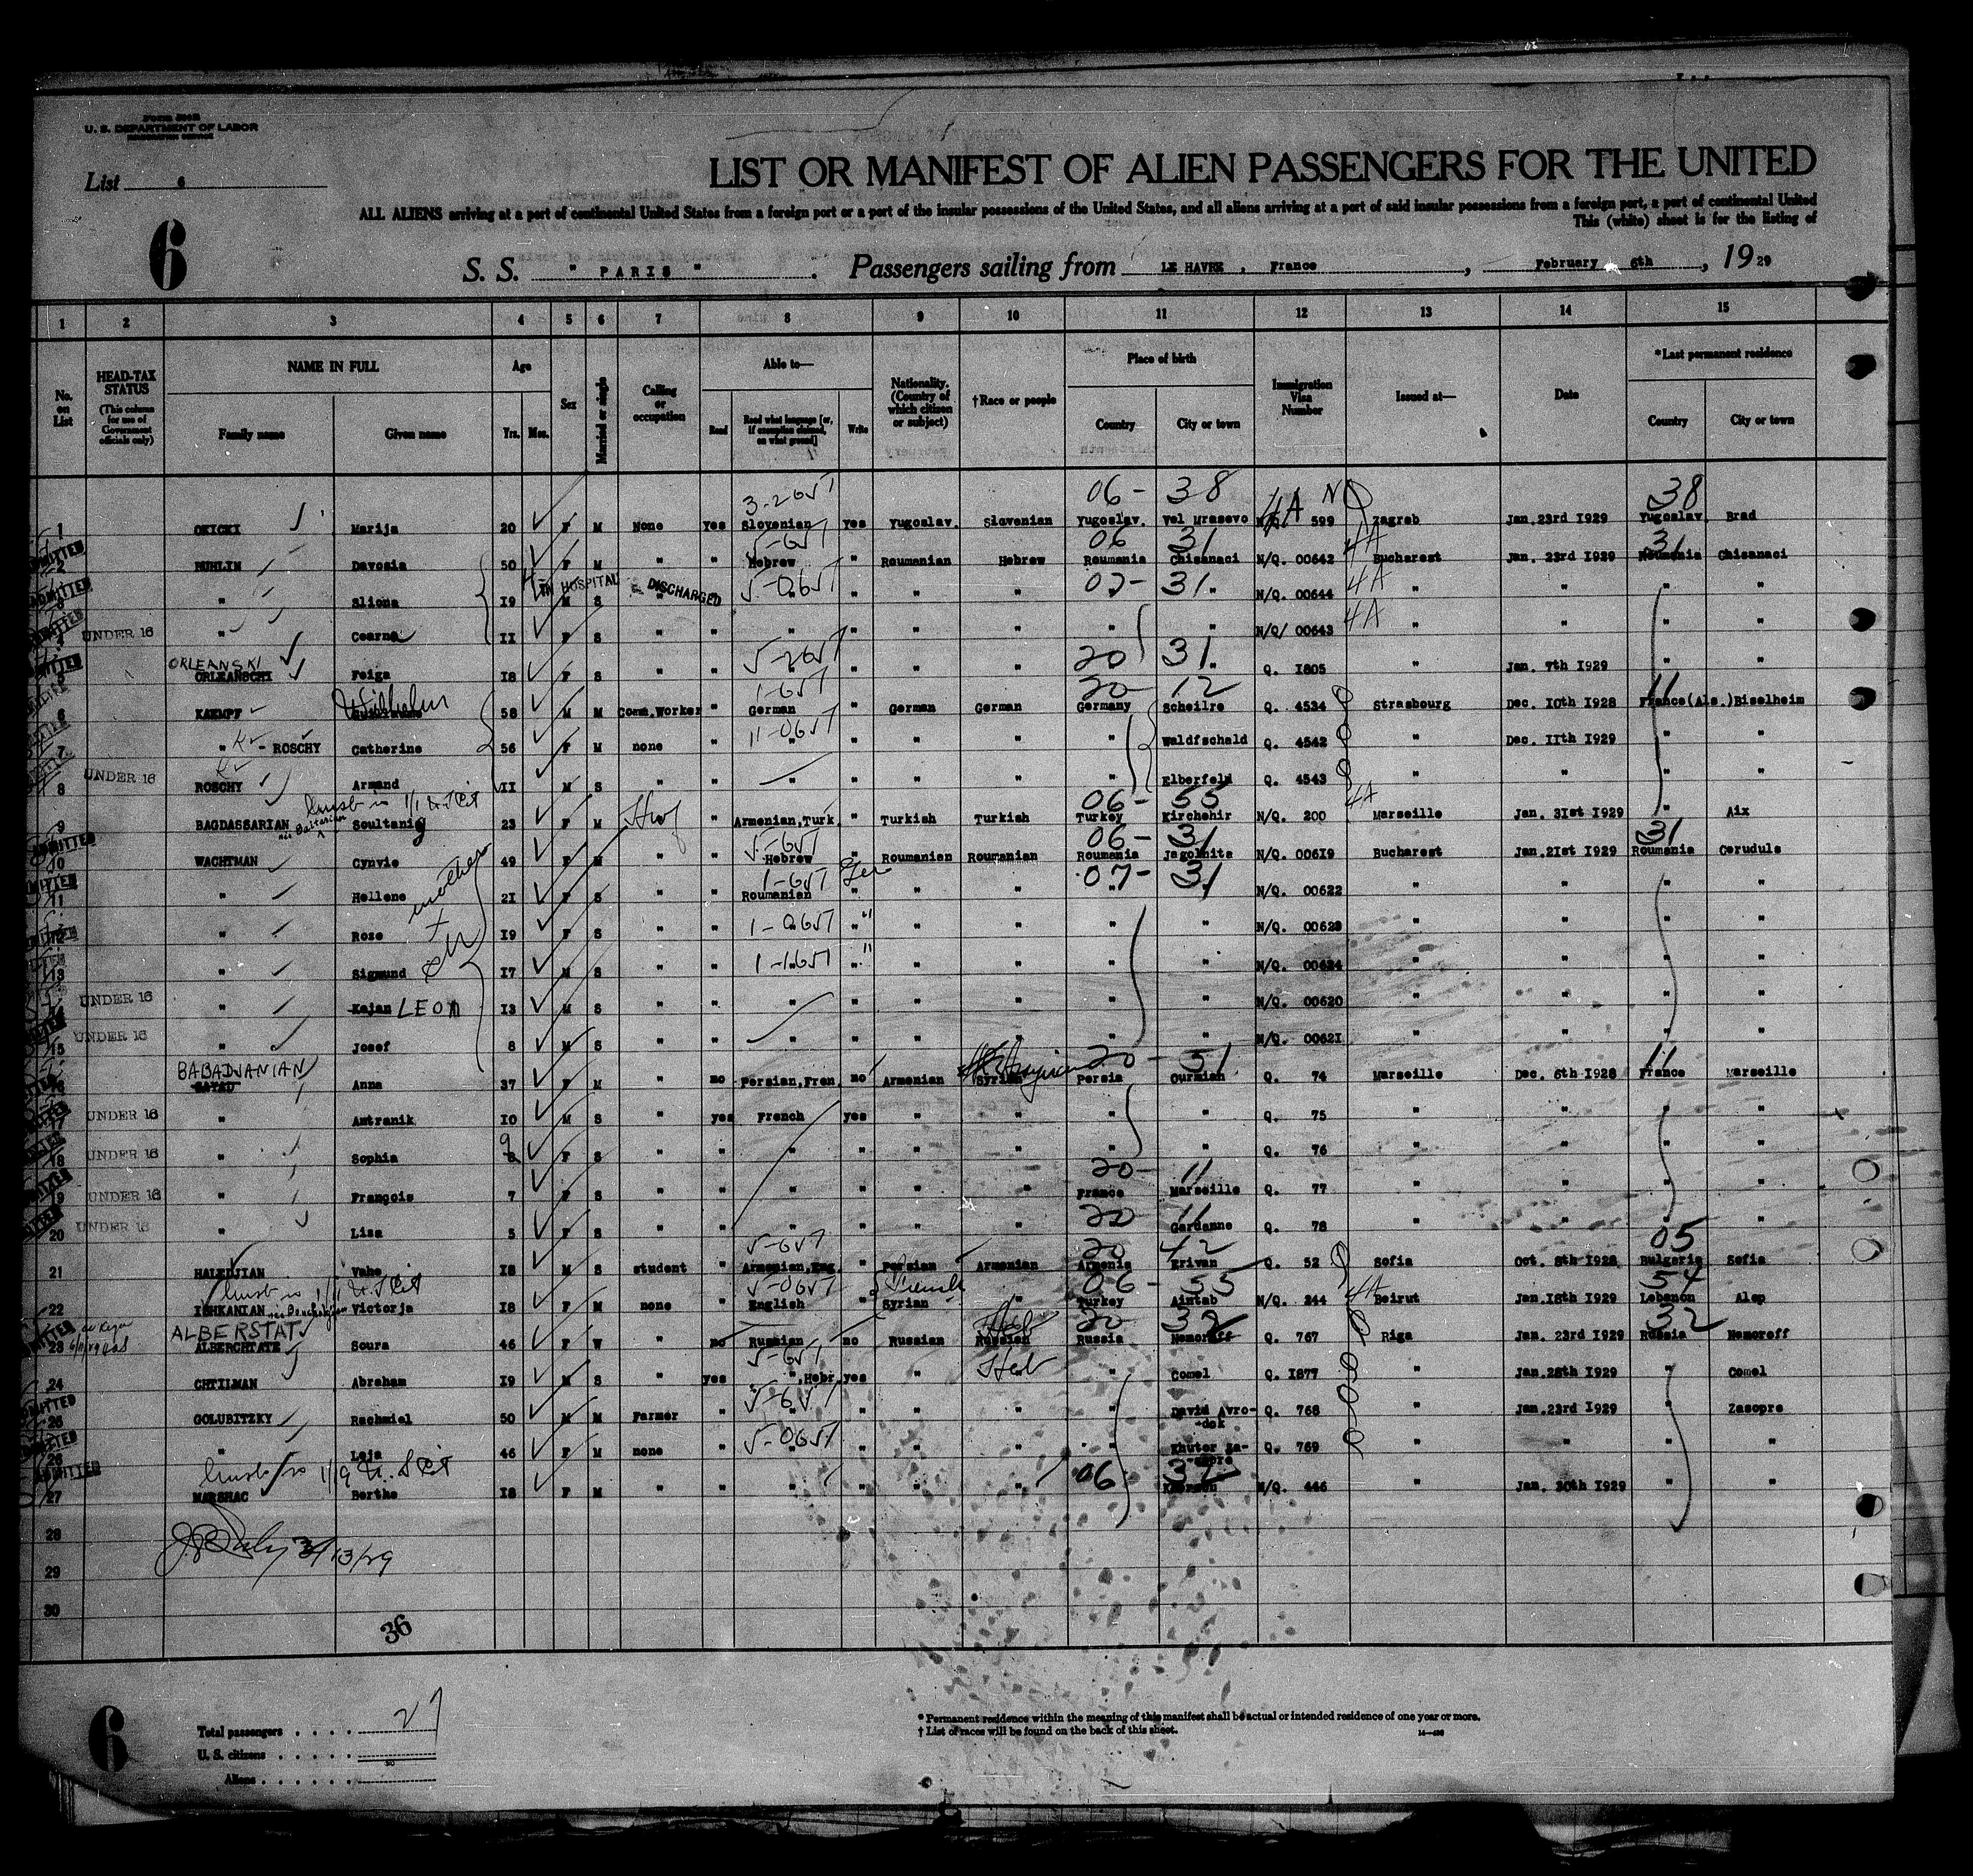 Form 500B
U. S. DEPARTMENT OF LABOR
IMMIGRATION SERVICE
List 6
6
LIST OR MANIFEST OF ALIEN PASSENGERS FOR THE UNITED
ALL ALIENS arriving at a port of continental United States from a foreign port or a port of the insular possessions of the United States, and all aliens arriving at a port of said insular possessions from a foreign port, a port of continental United
This (white) sheet is for the listing of
S. S. " PARIS " . Passengers sailing from LE HAVRE , France , February 6th , 19 29
1 2 3 4 5 6 7 8 9 10 11 12 13 14 15
No. on List
HEAD-TAX STATUS (This column for use of Government officials only)
NAME IN FULL
Family name
Given name
Age
Yrs. Mos.
Sex
Married or single
Calling or occupation
Able to—
Read
Read what language [or, if exemption claimed, on what ground]
Write
Nationality. (Country of which citizen or subject)
†Race or people
Place of birth
Country
City or town
Immigration Visa Number
Issued at—
Date
*Last permanent residence
Country
City or town
06 - 38 38
1 OKICKI Marija 20 F M None Yes Slovenian Yes Yugoslav. Slovenian Yugoslav. Vel Mrasevo 4A 599 Zagreb Jan.23rd 1929 Yugoslav. Brad
06 31 4A 31
2 RUHLIN Davosia 50 F M " " Hebrew " Roumanian Hebrew Roumania Chisanaci N/Q. 00642 Bucharest Jan. 23rd 1929 Roumania Chisanaci
IN HOSPITAL DISCHARGED 07- 31. 4A
3 " Sliona 19 M S " " " " " " " " N/Q. 00644 " " " "
4A
4 UNDER 16 " Cearna 11 F S " " " " " " " " N/Q/ 00643 " " " "
ORLEANSKI 20 31.
5 ORLEANSCHI Feiga 18 F S " " " " " " " " Q. 1805 " Jan. 7th 1929 " "
Wilhelm 20 12 11
6 KAEMPF 58 M M Comm.Worker " German " German German Germany Scheilre Q. 4534 Strasbourg Dec. 10th 1928 France(Als.)Biselheim
7 " - ROSCHY Catherine 56 F M none " " " " " " Waldfschald Q. 4542 " Dec. 11th 1929 " "
8 UNDER 16 ROSCHY Armand 11 M S " " " " " " " Elberfeld Q. 4543 " " " "
06 - 55 4A
9 BAGDASSARIAN Soultanig 23 F M " Armenian,Turk. " Turkish Turkish Turkey Kirchehir N/Q. 200 Marseille Jan. 31st 1929 " Aix
06 - 31 31
10 WACHTMAN Cynvie 49 F M " " Hebrew " Roumanian Roumanian Roumania Jagolnita N/Q. 00619 Bucharest Jan.21st 1929 Roumania Cerudule
07- 31
11 " Hellene 21 F S " " Roumanian " " " " " N/Q. 00622 " " " "
mother
12 " Rose 19 F S " " " " " " " " N/Q. 00623 " " " "
13 " Sigmund 17 M S " " " " " " " " N/Q. 00624 " " " "
14 UNDER 16 " Kajan LEON 13 M S " " " " " " " " N/Q. 00620 " " " "
15 UNDER 16 " Josef 8 M S " " " " " " " " N/Q. 00621 " " " "
BABADJANIAN 20 - 51 11
16 Anna 37 F M " no Persian,Fren. no Armenian Syrian Persia Ourmiah Q. 74 Marseille Dec. 6th 1928 France Marseille
17 UNDER 16 " Antranik 10 M S " yes French yes " " " " Q. 75 " " " "
18 UNDER 16 " Sophia 9 F S " " " " " " " " Q. 76 " " " "
20- 11
19 UNDER 16 " François 7 F S " " " " " " France Marseille Q. 77 " " " "
20 11
20 UNDER 16 " Lisa 5 F S " " " " " " " Gardanne Q. 78 " " " "
20 42 05
21 HALEDJIAN Vahe 18 M S student " Armenian,Eng. " Persian Armenian Armenia Erivan Q. 52 Sofia Oct. 8th 1928 Bulgaria Sofia
French 06 - 55 4A 54
22 ISHKANIAN Victorja 18 F M none " English " Syrian " Turkey Aintab N/Q. 244 Beirut Jan.18th 1929 Lebanon Alep
ALBERSTAT Heb 20 32 32
23 ALBERCHTATE Soura 46 F W " no Russian no Russian Russian Russia Nemoroff Q. 767 Riga Jan. 23rd 1929 Russia Nemoroff
Heb
24 CHTILMAN Abraham 19 M S " yes ",Hebr. yes " " " Gomel Q. 1877 " Jan.28th 1929 " Gomel
25 GOLUBITZKY Rachmiel 50 M M Farmer " " " " " " David Avro-dok Q. 768 " Jan.23rd 1929 " Zasopre
26 " Leja 46 F M none " " " " " " Khutor Za-sopre Q. 769 " " " "
06 32
27 MARSHAC Berthe 18 F M " " " " " " " Kherson N/Q. 446 " Jan. 30th 1929 " "
28
29
30
36
6
Total passengers . . . . 27
U. S. citizens . . . . .
Aliens . . . . . .
* Permanent residence within the meaning of this manifest shall be actual or intended residence of one year or more.
† List of races will be found on the back of this sheet.